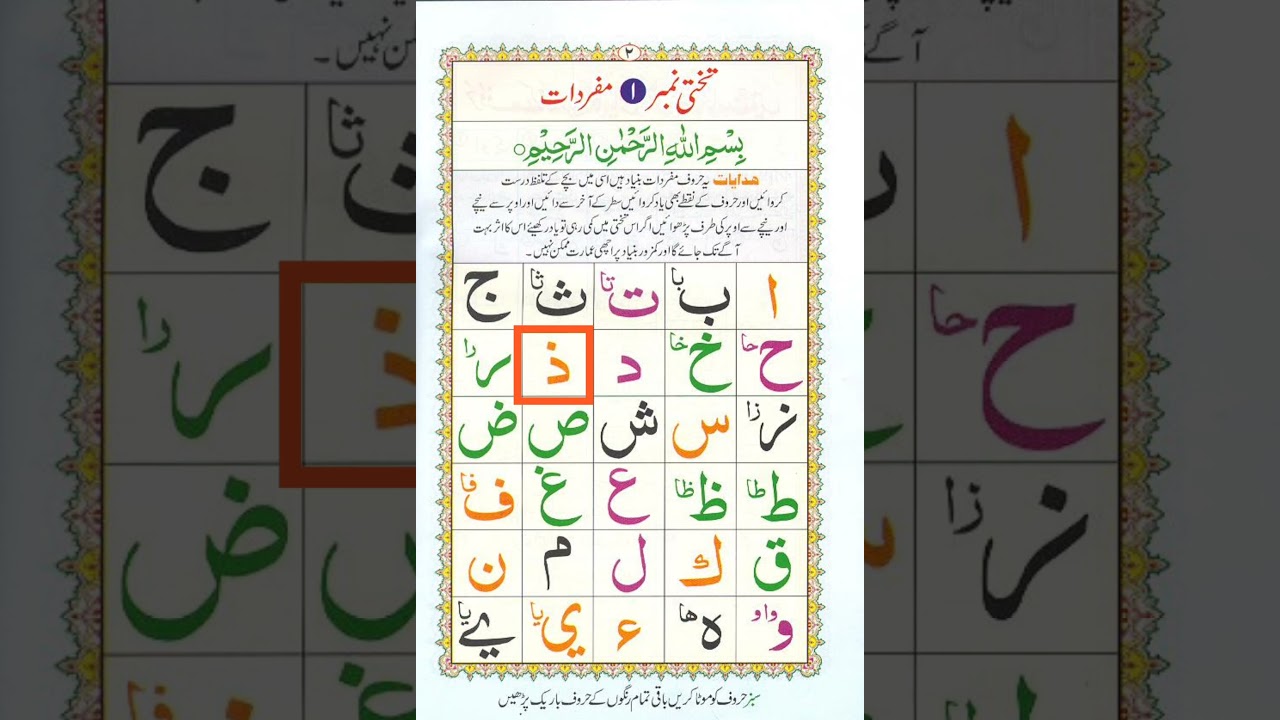 ۲
تختی نمبر ۱ مفردات
بِسْمِ اللّٰهِ الرَّحْمٰنِ الرَّحِیْمِ○
ھدایات یہ حروف مفردات بنیاد ہیں اسی میں بچے کے تلفظ درست
کروائیں اور حروف کے نقطے بھی یاد کروائیں سطر کے آخر سے دائیں اور اوپر سے نیچے
اور نیچے سے اوپر کی طرف پڑھوائیں اگر اس تختی میں کمی رہی تو یاد رکھیئے اس کا اثر بہت
آگے تک جائے گا اور کمزور بنیاد پر اچھی عمارت ممکن نہیں۔
ا ب با ت تا ث ثا ج
ح حا خ خا د ذ ر را
ز زا س ش ص ض
ط طا ظ ظا ع غ ف فا
ق ك ل م ن
و واو ہ ھا ء ی یا ے یا
سبز حروف کو موٹا کریں باقی تمام رنگوں کے حروف باریک پڑھیں